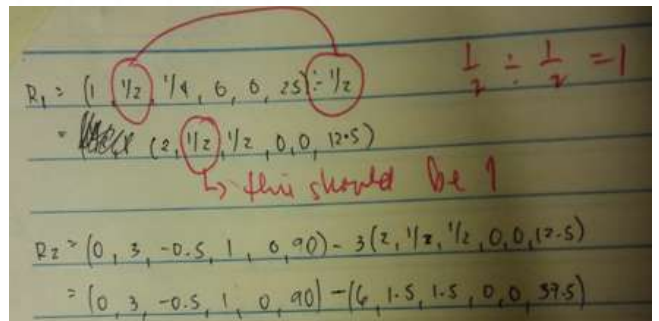 R₁ = (1, 1/2, 1/4, 0, 0, 25) ÷ 1/2
1/2 ÷ 1/2 = 1
= (2, 1/2, 1/2, 0, 0, 12.5)
↳ this should be 1
R2 = (0, 3, -0.5, 1, 0, 90) - 3(2, 1/2, 1/2, 0, 0, 12.5)
= (0, 3, -0.5, 1, 0, 90) - (6, 1.5, 1.5, 0, 0, 37.5)